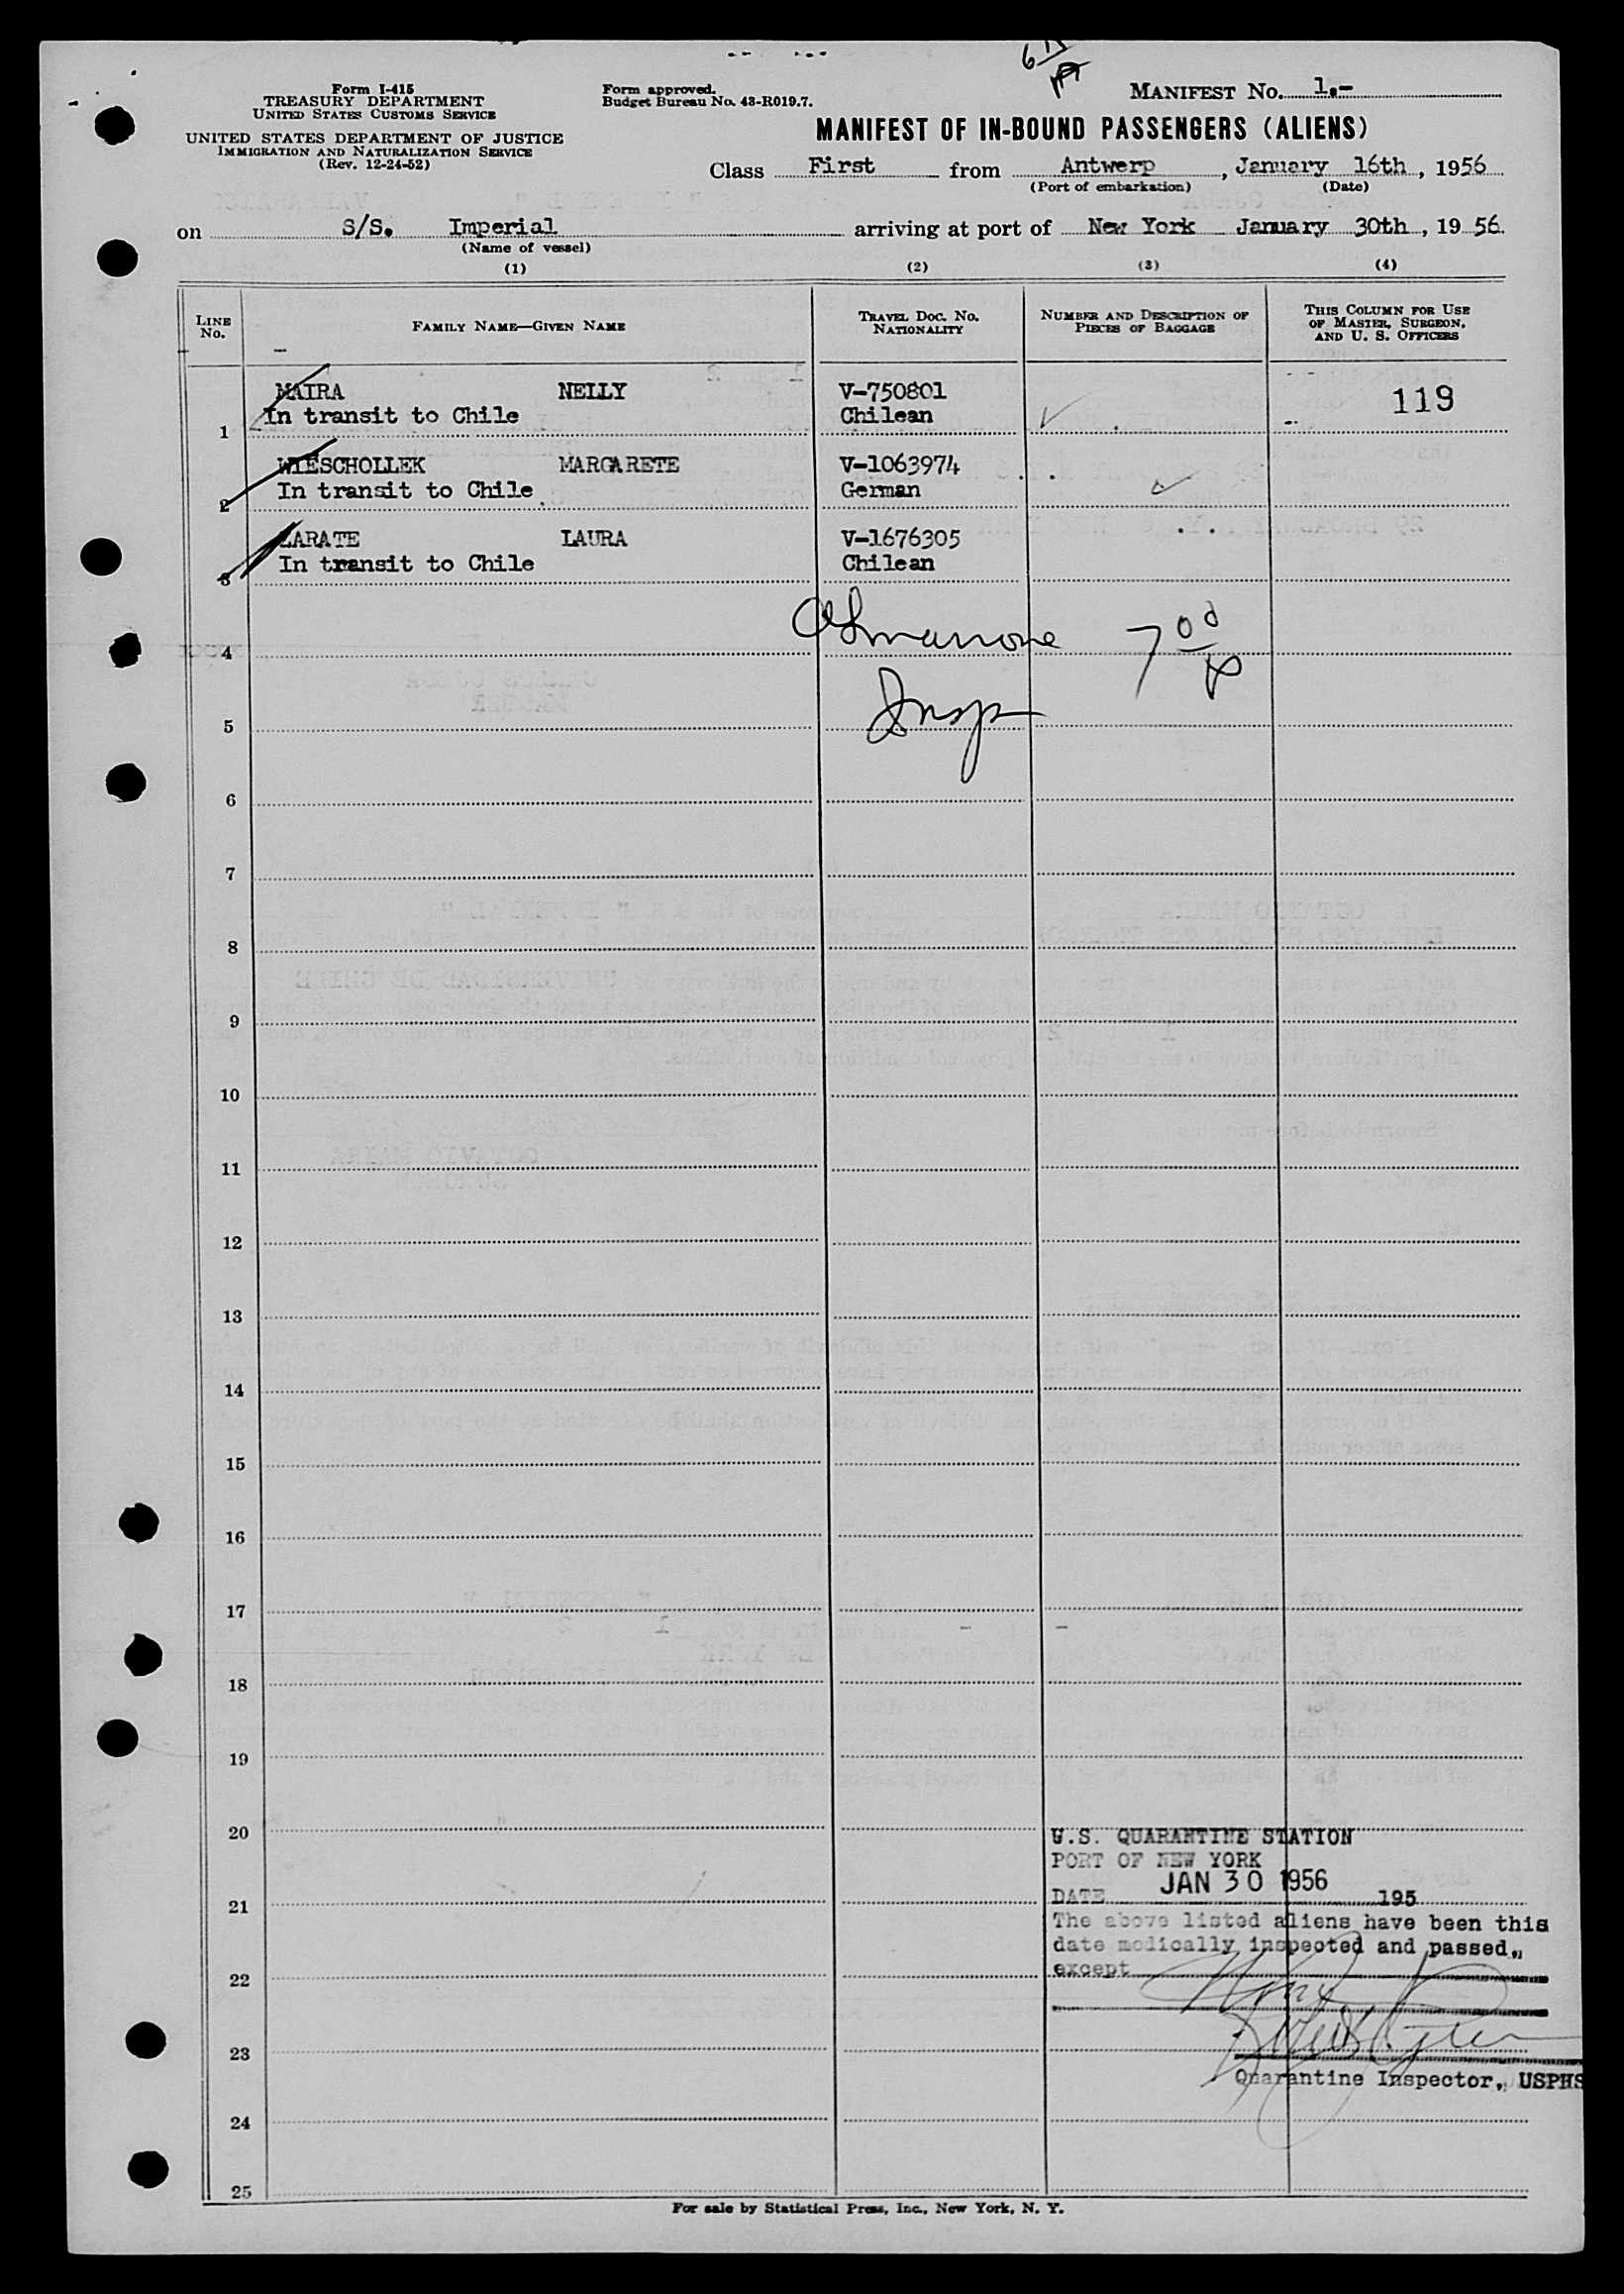 Form I-415
TREASURY DEPARTMENT
UNITED STATES CUSTOMS SERVICE
UNITED STATES DEPARTMENT OF JUSTICE
IMMIGRATION AND NATURALIZATION SERVICE
(Rev. 12-24-52)
Form approved.
Budget Bureau No. 43-R019.7.
MANIFEST NO. 1.-
MANIFEST OF IN-BOUND PASSENGERS (ALIENS)
Class First from Antwerp, January 16th, 1956
(Port of embarkation) (Date)
on S/S. Imperial arriving at port of New York January 30th, 19 56.
(Name of vessel)
(1) (2) (3) (4)
LINE NO. FAMILY NAME—GIVEN NAME TRAVEL DOC. NO. NATIONALITY NUMBER AND DESCRIPTION OF PIECES OF BAGGAGE THIS COLUMN FOR USE OF MASTER, SURGEON, AND U. S. OFFICERS
MAIRA NELLY V-750801 119
1 In transit to Chile Chilean
WIESCHOLLEK MARGARETE V-1063974
2 In transit to Chile. German
ZARATE LAURA V-1676305
3 In transit to Chile Chilean
4 7 00
5 Insp
6
7
8
9
10
11
12
13
14
15
16
17
18
19
20
U.S. QUARANTINE STATION
PORT OF NEW YORK
DATE JAN 30 1956 195
21
The above listed aliens have been this
date medically inspected and passed,
22 except
23
Quarantine Inspector, USPHS
24
25
For sale by Statistical Press, Inc., New York, N. Y.